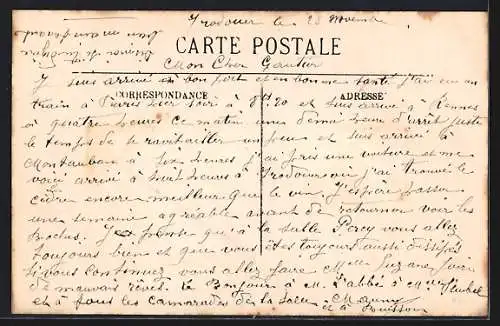 Irodouer le 25 Novembre
CARTE POSTALE
Mon Cher Gautier
Je suis arrivé à bon port et en bonne santé j'ai eu un
CORRESPONDANCE
ADRESSE
train à Paris hier soir à 8h20 et suis arrivé à Rennes
à quatre heures ce matin une demi heure d'arrêt juste
le temps de se ravitailler un peu et suis arrivé à
Montauban à six heures j'ai pris une voiture et me
voici arrivé à huit heures à Irodouer j'ai trouvé le
cidre encore meilleur que le vin. J'espère passer
une semaine agréable avant de retourner voir les
Boches. Je pense qu'à la salle Percy vous allez
toujours bien et que vous êtes toujours aussi dissipés
si vous continuez vous allez faire Melle Suzanne faire
de mauvais rêves. Le Bonjour à M. l'abbé à Melle
et à tous les camarades de la salle
et à